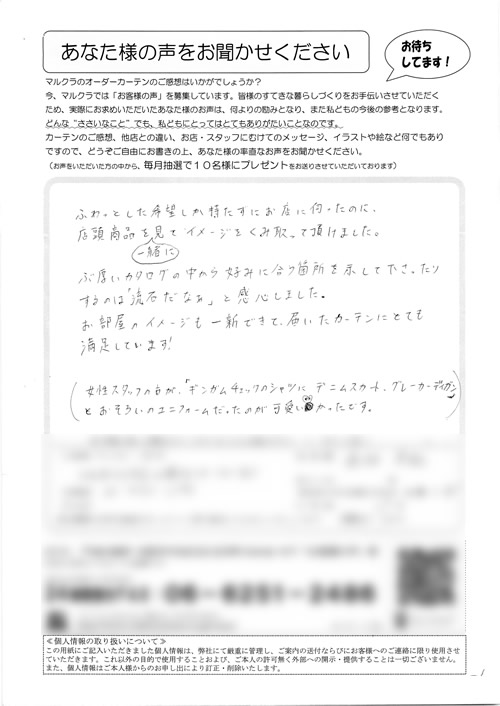 あなた様の声をお聞かせください
お待ち
してます!
マルクラのオーダーカーテンのご感想はいかがでしょうか?
今、マルクラでは「お客様の声」を募集しています。皆様のすてきな暮らしづくりをお手伝いさせていただく
ため、実際にお求めいただいたあなた様のお声は、何よりの励みとなり、また私どもの今後の参考となります。
どんな“ささいなこと”でも、私どもにとってはとてもありがたいことなのです。
カーテンのご感想、他店との違い、お店・スタッフにむけてのメッセージ、イラストや絵など何でもあり
ますので、どうぞご自由にお書きの上、あなた様の率直なお声をお聞かせください。
(お声をいただいた方の中から、毎月抽選で10名様にプレゼントをお送りさせていただいております)
ふわっとした希望しか持たずにお店に伺ったのに、
店頭商品を見てイメージをくみ取って頂けました。
一緒に
ぶ厚いカタログの中から好みに合う箇所を示して下さったり
するのは「流石だなぁ」と感心しました。
お部屋のイメージも一新できて、届いたカーテンにとても
満足しています!
(女性スタッフの方が、「ギンガムチェックのシャツに デニムスカート、グレーカーディガン」
とおそろいのユニフォームだったのが可愛いかったです。)
06-6251-2486
≪個人情報の取り扱いについて≫
この用紙にご記入いただきました個人情報は、弊社にて厳重に管理し、ご案内の送付ならびにお客様へのご連絡に限り使用させ
ていただきます。これ以外の目的で使用することおよび、ご本人の許可無く外部への開示・提供することは一切ございません。
また、個人情報はご本人様からのお申し出により訂正・削除いたします。